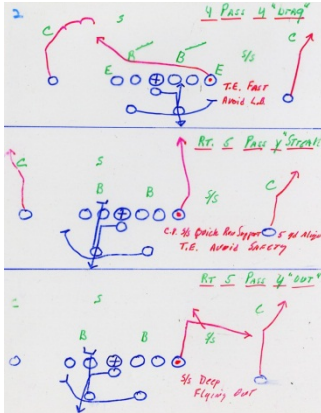 2.
4 PASS Y "DRAG"
S
C
C
B
B
S/S
E
E
T.E. FAST
Avoid L.B.
RT. 5 PASS Y "STREAK"
C
S
C
B
B
S/S
C.B. S/S Quick Run Support
5 yd Align
T.E. AVOID SAFETY
RT 5 PASS Y "OUT"
C
S
C
B
B
S/S
S/S Deep
Flying Out